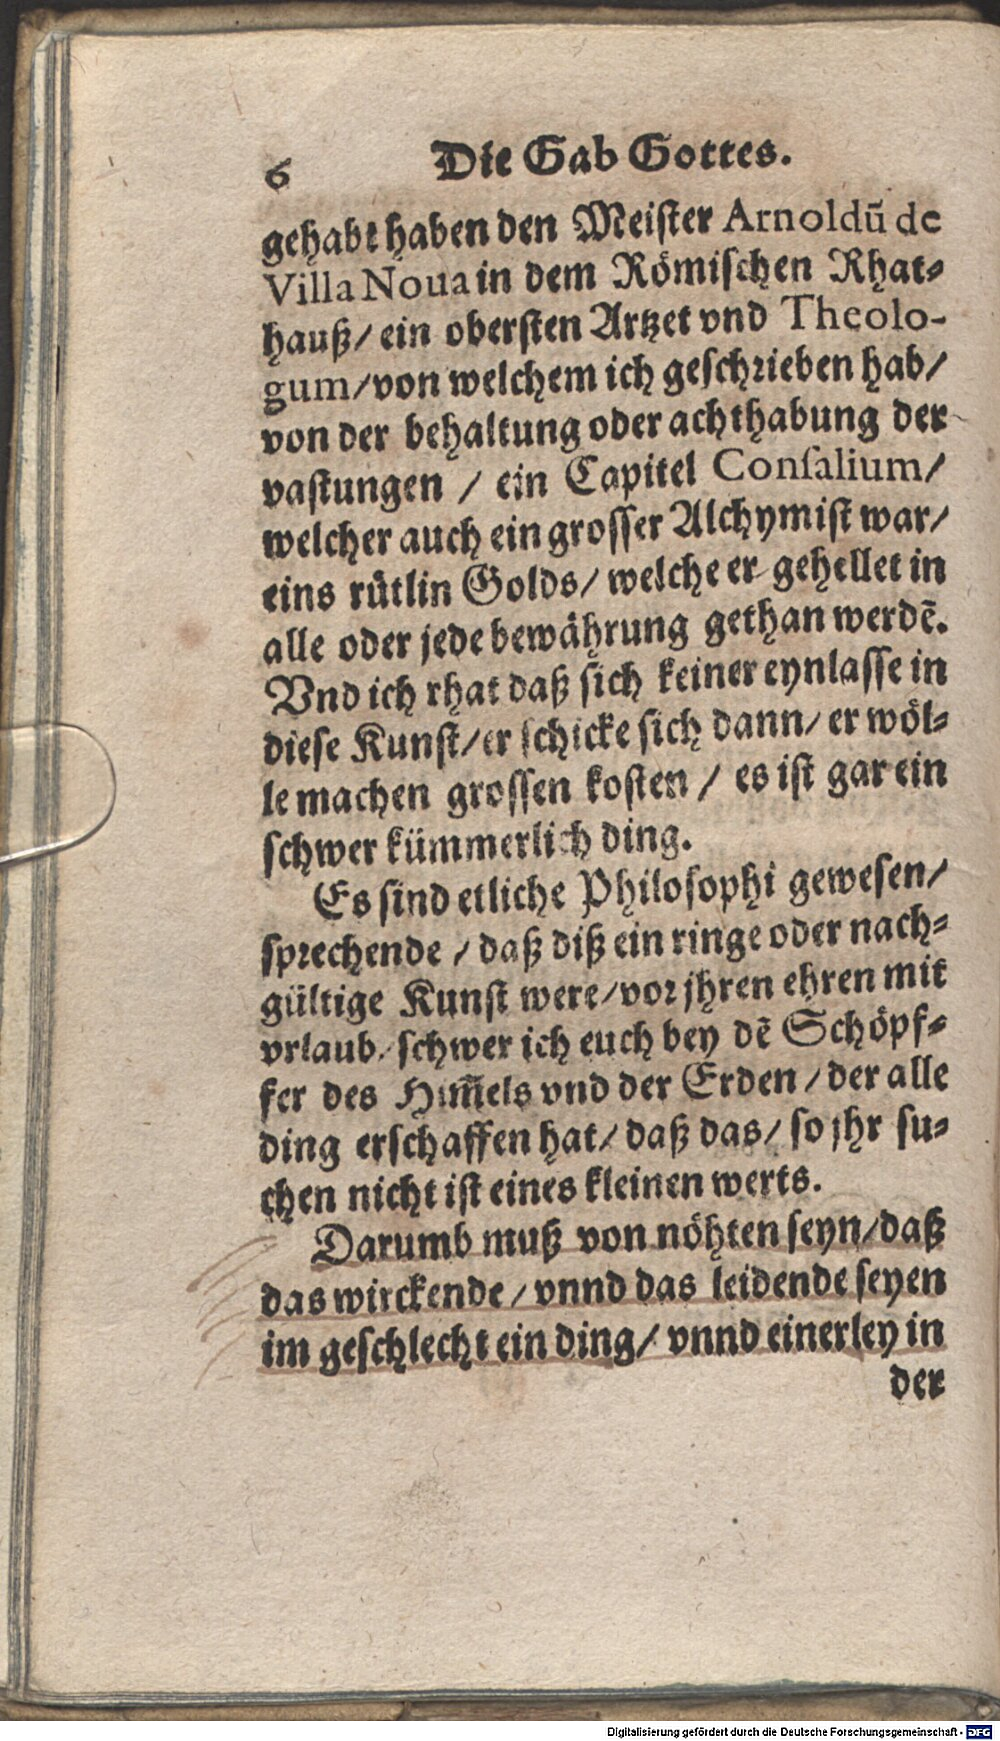 6 Die Gab Gottes.
gehabt haben den Meister Arnoldū de
Villa Noua in dem Römischen Rhat⸗
hauß/ ein obersten Artzet vnd Theolo-
gum/ von welchem ich geschrieben hab/
von der behaltung oder achthabung der
vastungen / ein Capitel Consalium/
welcher auch ein grosser Alchymist war/
eins rütlin Golds/ welche er gehellet in
alle oder jede bewährung gethan werdē.
Vnd ich rhat daß sich keiner eynlasse in
diese Kunst/ er schicke sich dann/ er wöl⸗
le machen grossen kosten / es ist gar ein
schwer kümmerlich ding.
Es sind etliche Philosophi gewesen/
sprechende / daß diß ein ringe oder nach⸗
gültige Kunst were/ vor jhren ehren mit
vrlaub/ schwer ich euch bey dē Schöpf⸗
fer des Him̄els vnd der Erden / der alle
ding erschaffen hat/ daß das/ so jhr su⸗
chen nicht ist eines kleinen werts.
Darumb muß von nöhten seyn/ daß
das wirckende / vnnd das leidende seyen
im geschlecht ein ding/ vnnd einerley in
der
Digitalisierung gefördert durch die Deutsche Forschungsgemeinschaft - DFG